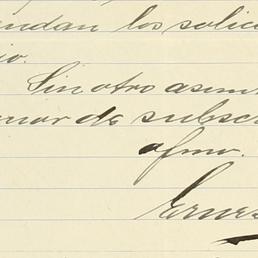 endan los solic
io.
Sin otro asun
onor de subsc
afmo.
Ernes